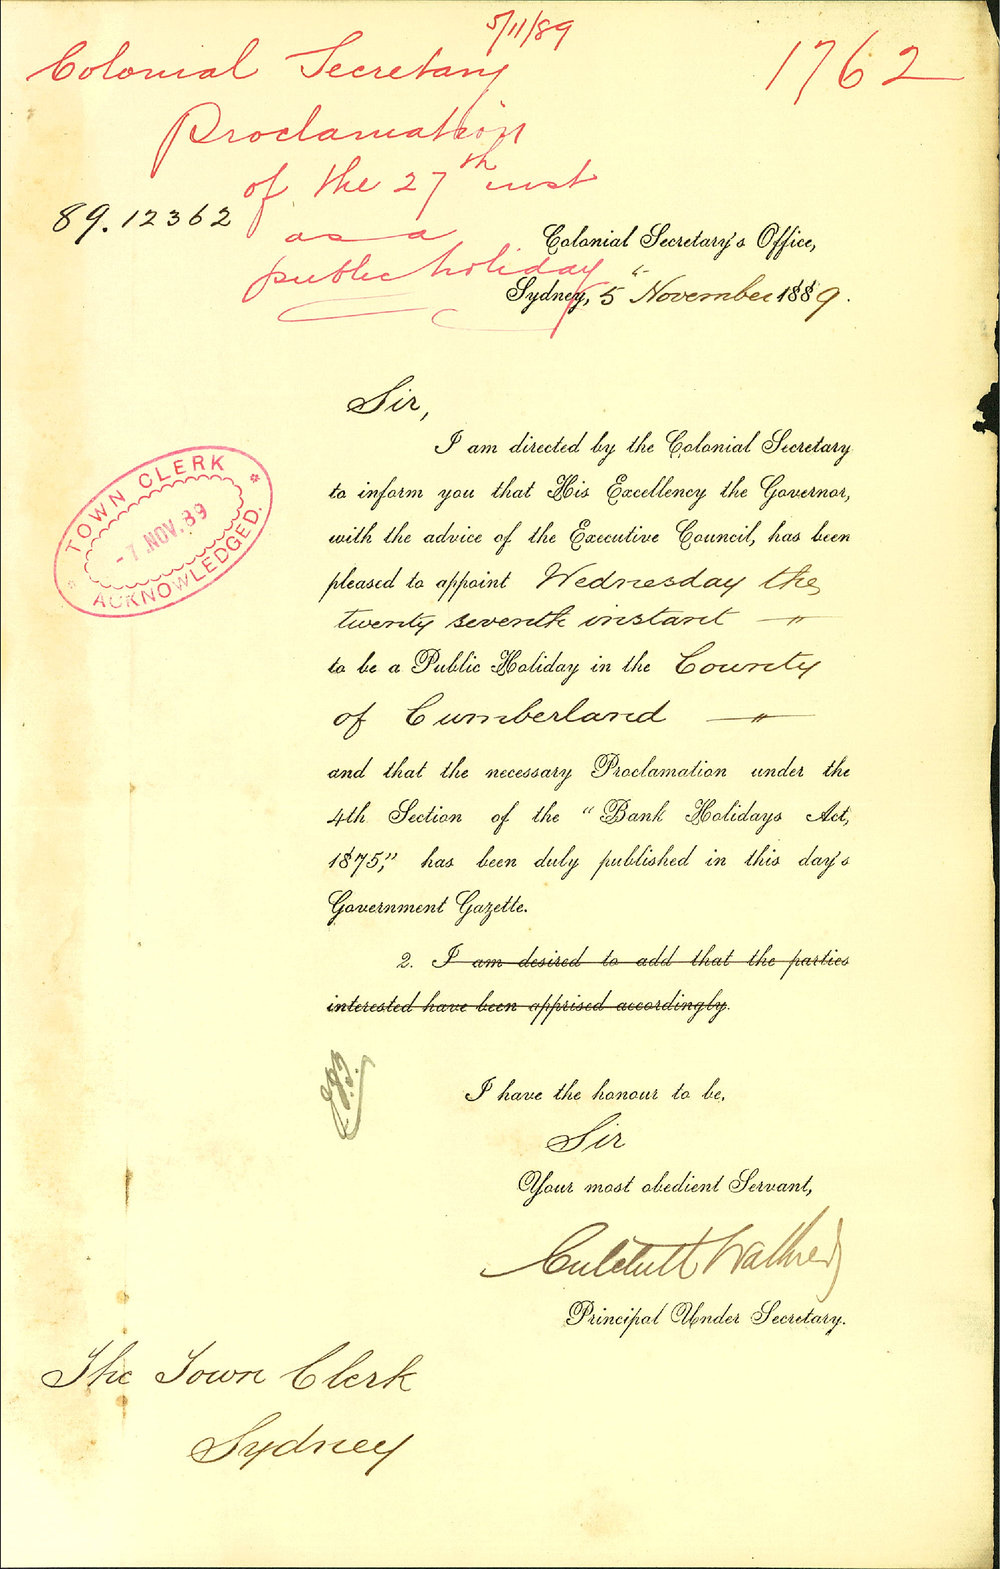 5/11/89
1762
Colonial Secretary
Proclamation
of the 27th inst
as a
public holiday
89.12362
Colonial Secretary's Office,
Sydney, 5" November 1889.
Sir,
I am directed by the Colonial Secretary
to inform you that His Excellency the Governor,
with the advice of the Executive Council, has been
pleased to appoint Wednesday the
twenty seventh instant — " —
to be a Public Holiday in the County
of Cumberland — " —
and that the necessary Proclamation under the
4th Section of the “Bank Holidays Act,
1875,” has been duly published in this day's
Government Gazette.
2. I am desired to add that the parties
interested have been apprised accordingly.
TOWN CLERK
-7.NOV.89
ACKNOWLEDGED.
I have the honour to be,
Sir
Your most obedient Servant,
Principal Under Secretary.
The Town Clerk
Sydney